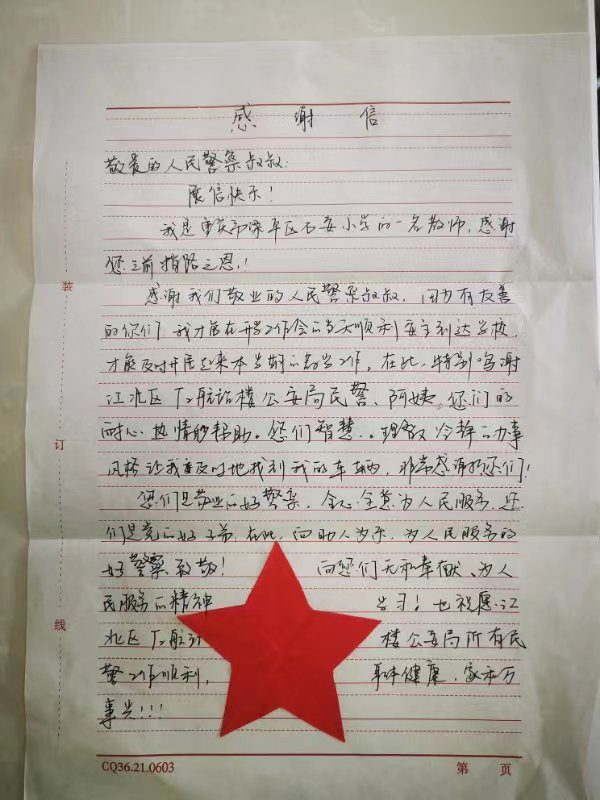 感谢信
敬爱的人民警察叔叔：
展信快乐！
我是重庆市梁平区石安小学的一名教师，感谢
您之前指路之恩！
感谢我们敬业的人民警察叔叔，因为有友善
的你们，我才能在开学工作会的当天顺利安全到达学校，
才能及时开展起来本学期的教学工作，在此，特别鸣谢
江北区T2航站楼公安局民警、阿姨，您们的
耐心、热情的帮助。您们智慧、理智冷静的办事
风格让我及时地找到我的车辆，非常感谢您们！
您们是敬业的好警察，全心全意为人民服务，您
们是党的好子弟，在此，向助人为乐，为人民服务的
好警察致敬！向您们无私奉献、为人
民服务的精神学习！也祝愿江
北区T2航站楼公安局所有民
警工作顺利，身体健康，家和万
事兴！！！
装
订
线
CQ36.21.0603
第 页